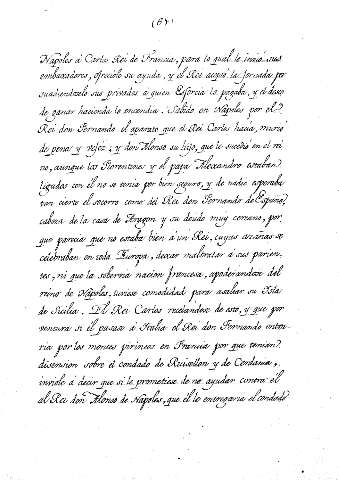 (67)
Napoles à Carlos Rei de Francia, para lo qual le inviò sus
embaxadores, ofreciòle su ayuda, y el Rei aceptò la jornada per
suadiendoselo sus privados a quien Esforcia lo pagaba, y el deseo
de ganar hacienda lo encendia. Sabido en Napoles por el
Rei don Fernando el aparato que el Rei Carlos hacia, muriò
de pena y vejez, y don Alonso su hijo, que le sucediò en el rei
no, aunque los Florentines y el papa Alexandro estaban
ligados con el no se tenia por bien seguro, y de nadie esperaba
tan cierto el socorro como del Rei don Fernando de España,
cabeza de la casa de Aragon y su deudo muy cercano, por
que parecia que no estaba bien à un Rei, cuyas hazañas se
celebraban en toda Europa, dexar maltratar a sus parien
tes, ni que la soberbia nacion francesa, apoderandose del
reino de Napoles, tuviese comodidad para asaltar su Isla
de Sicilia. El Rei Carlos recelandose de esto, y que por
ventura si el pasaba à Italia el Rei don Fernando entra
ria por los montes pirineos en Francia por que tenian
disension sobre el condado de Ruisellon y de Cerdania,
inviole à decir que si le prometiese de no ayudar contra èl
al Rei don Alonso de Napoles, que èl le entregaria el condado